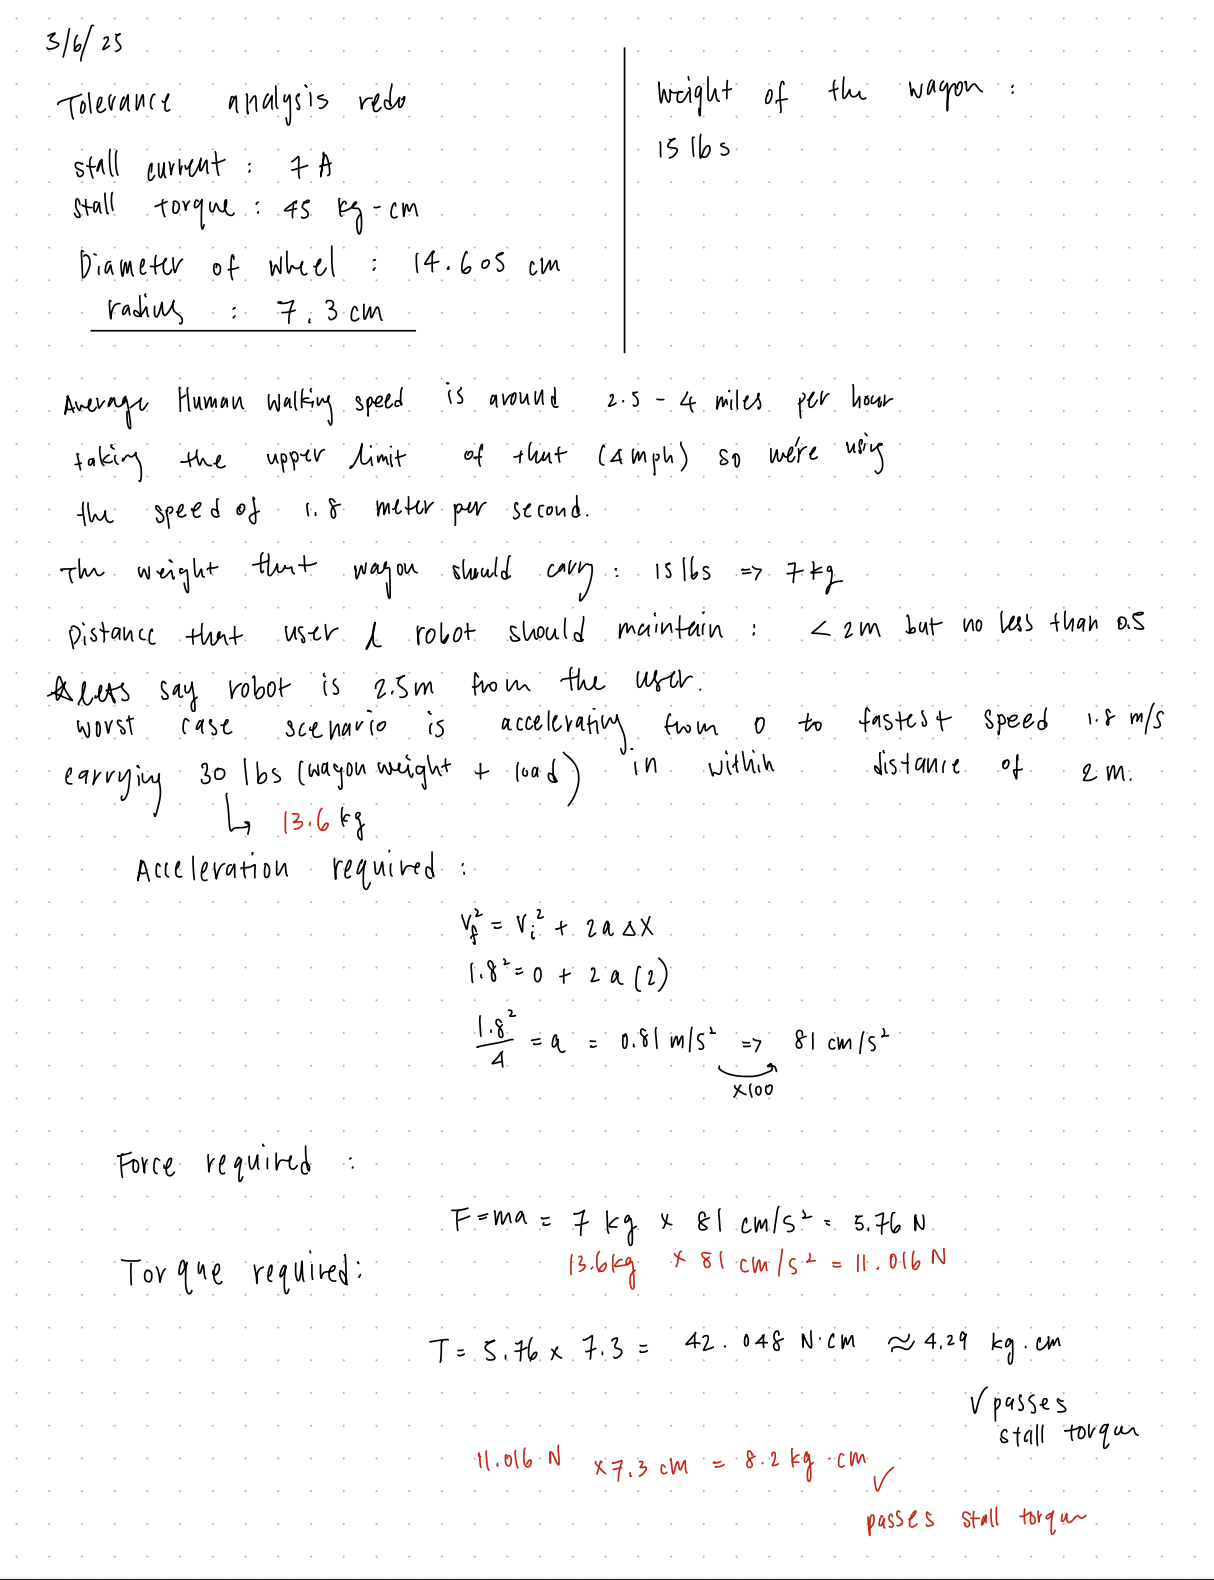 3/6/25
Tolerance analysis redo
stall current : 7 A
stall torque : 45 kg-cm
Diameter of wheel : 14.605 cm
radius : 7.3 cm
weight of the wagon :
15 lbs
Average Human walking speed is around 2.5 - 4 miles per hour
taking the upper limit of that (4 mph) so we're using
the speed of 1.8 meter per second.
The weight that wagon should carry : 15 lbs => 7 kg
Distance that user & robot should maintain : < 2m but no less than 0.5
lets say robot is 2.5m from the user.
worst case scenario is accelerating from 0 to fastest speed 1.8 m/s
carrying 30 lbs (wagon weight + load) in within distance of 2 m.
↳ 13.6 kg
Acceleration required :
V_f² = V_i² + 2a ΔX
1.8² = 0 + 2a(2)
1.8²/4 = a = 0.81 m/s² => 81 cm/s²
x100
Force required :
F=ma = 7 kg x 81 cm/s² = 5.76 N
13.6kg x 81 cm/s² = 11.016 N
Torque required:
T = 5.76 x 7.3 = 42.048 N·cm ≈ 4.29 kg.cm
✓ passes
stall torque
11.016 N x 7.3 cm = 8.2 kg.cm ✓
passes stall torque